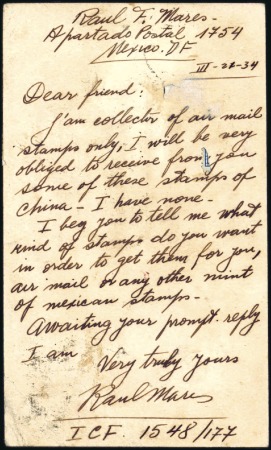 Raul F. Mares-
Apartado Postal 1754
Mexico. DF
III-22-34
Dear friend:
I'am collector of air mail
stamps only, I will be very
obliged to receive from you
some of these stamps of
China - I have none-
I beg you to tell me what
kind of stamps do you want
in order to get them for you,
air mail or any other mint
of mexican stamps-
Awaiting your prompt reply
I am
Very truly yours
Raul Mares
ICF. 1548/177